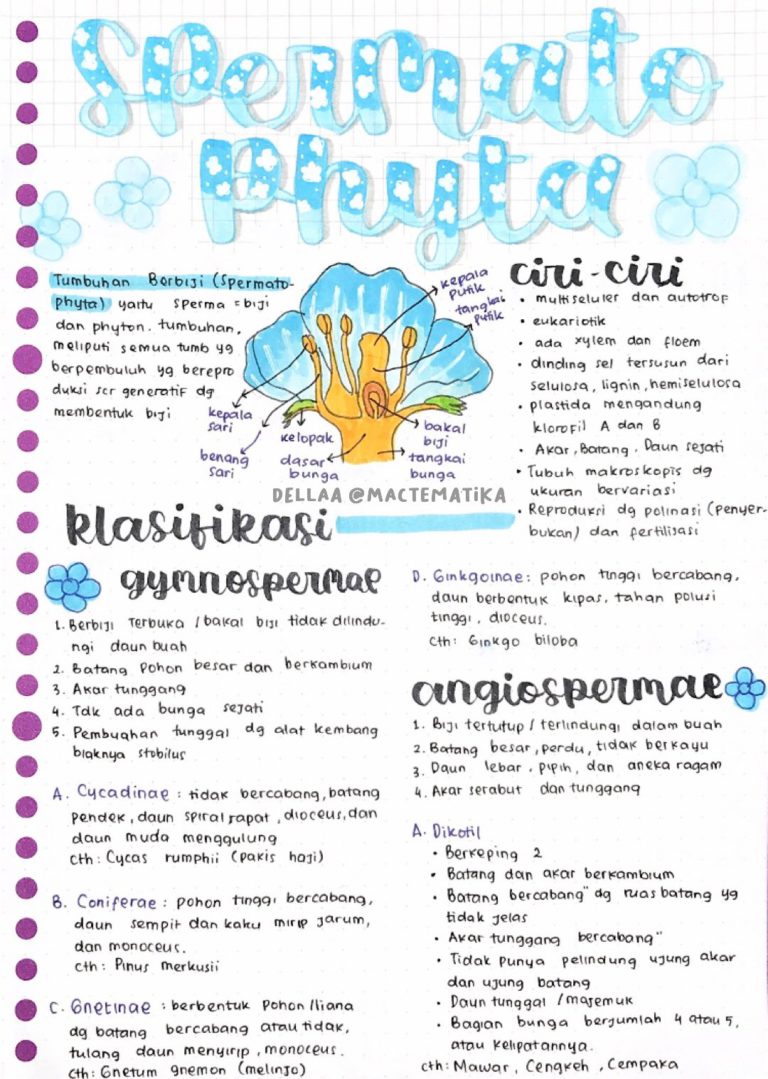 Spermato
phyta
Tumbuhan Berbiji (Spermato-
phyta) yaitu sperma = biji
dan phyton. tumbuhan,
meliputi semua tumb yg
berpembuluh yg berepro
duksi scr generatif dg
membentuk biji
kepala
putik
tangkai
putik
kepala
sari
benang
sari
kelopak
dasar
bunga
bakal
biji
tangkai
bunga
DELLAA @MACTEMATIKA
ciri-ciri
• multiseluler dan autotrof
• eukariotik
• ada xylem dan floem
• dinding sel tersusun dari
selulosa, lignin, hemiselulosa
• plastida mengandung
klorofil A dan B
• Akar, Batang, Daun sejati
• Tubuh makroskopis dg
ukuran bervariasi
• Reproduksi dg polinasi (penyer-
bukan) dan fertilisasi
klasifikasi
gymnospermae
1. Berbiji Terbuka / bakal biji tidak dilindu-
ngi daun buah
2. Batang Pohon besar dan berkambium
3. Akar tunggang
4. Tdk ada bunga sejati
5. Pembuahan tunggal dg alat kembang
biaknya stobilus
A. Cycadinae : tidak bercabang, batang
pendek, daun spiral rapat, dioceus, dan
daun muda menggulung
cth: Cycas rumphii (pakis haji)
B. Coniferae : pohon tinggi bercabang,
daun sempit dan kaku mirip jarum,
dan monoceus.
cth: Pinus merkusii
C. Gnetinae : berbentuk Pohon/liana
dg batang bercabang atau tidak,
tulang daun menyirip, monoceus.
cth: Gnetum gnemon (melinjo)
D. Ginkgoinae: pohon tinggi bercabang,
daun berbentuk kipas, tahan polusi
tinggi, dioceus.
cth: Ginkgo biloba
angiospermae
1. Biji tertutup / terlindungi dalam buah
2. Batang besar, perdu, tidak berkayu
3. Daun lebar, pipih, dan aneka ragam
4. Akar serabut dan tunggang
A. Dikotil
• Berkeping 2
• Batang dan akar berkambium
• Batang bercabang" dg ruas batang yg
tidak jelas
• Akar tunggang bercabang"
• Tidak punya pelindung ujung akar
dan ujung batang
• Daun tunggal / majemuk
• Bagian bunga berjumlah 4 atau 5,
atau kelipatannya.
cth: Mawar, Cengkeh, Cempaka